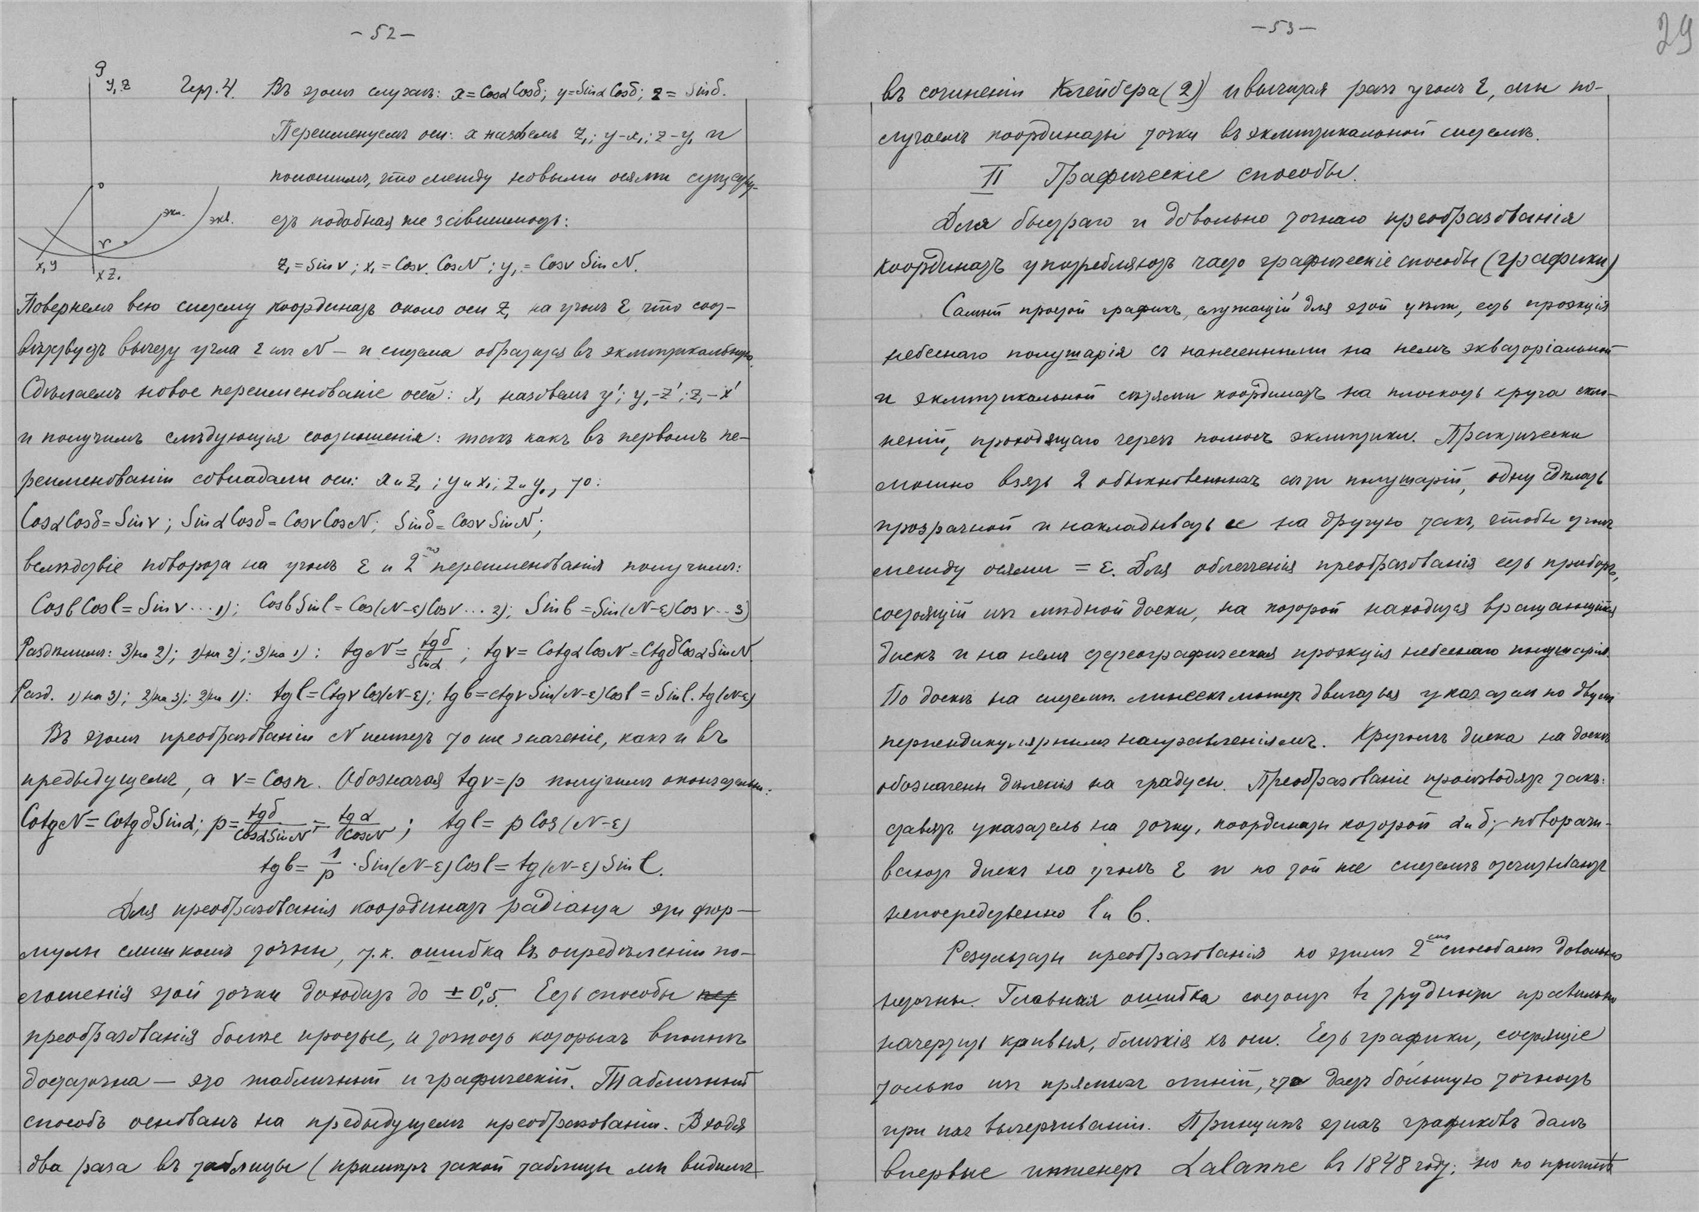 - 52 -
y, z
Черт. 4. Въ этомъ случаѣ: x = Cosα Cosδ; y = Sinα Cosδ; z = Sinδ.
Переименуемъ оси: x назовемъ z₁; y - x₁; z - y₁ и
положимъ, что между новыми осями существу-
етъ подобная же зависимость:
экв.
экл.
γ
x, y
x z₁
z₁ = Sin ν; x₁ = Cosν CosN; y₁ = Cosν SinN.
Повернемъ всю систему координатъ около оси z₁ на уголъ ε, что соот-
вѣтствуетъ вычету угла ε изъ N — и система обратится въ эклиптикальную.
Сдѣлаемъ новое переименованіе осей: x₁ назовемъ y'; y₁ - z'; z₁ - x'
и получимъ слѣдующія соотношенія: такъ какъ въ первомъ пе-
реименованіи совпадали оси: x и z₁; y и x₁; z и y₁, то:
Cosα Cosδ = Sin ν; Sinα Cosδ = Cosν CosN; Sinδ = Cosν SinN;
вслѣдствіе поворота на уголъ ε и 2го переименованія получимъ:
Cosb Cosl = Sin ν ... 1); Cosb Sinl = Cos(N-ε) Cosν ... 2); Sinb = Sin(N-ε) Cosν ... 3)
Раздѣлимъ: 3) на 2); 1) на 2); 3) на 1): tgN = tgδ/Sinα; tgν = Cotgα CosN = Ctgδ Cosα SinN
Разд. 1) на 2); 2) на 3); 2) на 1): tgl = Ctgν Cos(N-ε); tgb = ctgν Sin(N-ε) Cosl = Sinl . tg(N-ε)
Въ этомъ преобразованіи N имѣетъ то же значеніе, какъ и въ
предыдущемъ, а ν = Cosn. Обозначая tgν = p получимъ окончательно:
CotgN = Cotgδ Sinα; p = tgδ/CosαSinN = tgα/CosN; tgl = p Cos(N-ε)
tgb = 1/p · Sin(N-ε) Cosl = tg(N-ε) Sin l.
Для преобразованія координатъ радіанта эти фор-
мулы слишкомъ точны, т.к. ошибка въ опредѣленіи по-
ложенія этой точки доходитъ до ± 0°,5. Есть способы
преобразованія болѣе простые, и точность которыхъ вполнѣ
достаточна — это табличный и графическій. Табличный
способъ основанъ на предыдущемъ преобразованіи. Входя
два раза въ таблицы (примѣръ такой таблицы мы видимъ
- 53 -
29
въ сочиненіи Клейбера (2)) и вычитая разъ уголъ ε, мы по-
лучаемъ координаты точки въ эклиптикальной системѣ.
II Графическіе способы.
Для быстраго и довольно точнаго преобразованія
координатъ употребляютъ часто графическіе способы (графики)
Самый простой графикъ, служащій для этой цѣли, есть проэкція
небеснаго полушарія съ нанесенными на немъ экваторіальной
и эклиптикальной сѣтями координатъ на плоскость круга скло-
неній, проходящаго черезъ полюсъ эклиптики. Практически
можно взять 2 обыкновенныхъ сѣти полушарій, одну сдѣлать
прозрачной и накладывать ее на другую такъ, чтобы уголъ
между осями = ε. Для облегченія преобразованія есть приборъ,
состоящій изъ мѣдной доски, на которой находится вращающійся
дискъ и на немъ стереографическая проэкція небеснаго полушарія.
По доскѣ на системѣ линеекъ можетъ двигаться указатель по двумъ
перпендикулярнымъ направленіямъ. Кругомъ диска на доскѣ
обозначены дѣленія на градусы. Преобразованіе производятъ такъ:
ставятъ указатель на точку, координаты которой α и δ; поворачи-
ваютъ дискъ на уголъ ε и по той же системѣ отсчитываютъ
непосредственно l и b.
Результаты преобразованія по этимъ 2мъ способамъ довольно
неточны. Главная ошибка состоитъ въ трудности правильно
начертить кривыя, близкія къ оси. Есть графики, состоящіе
только изъ прямыхъ линій, что даетъ большую точность
при ихъ вычерчиваніи. Принципъ этихъ графиковъ далъ
впервые инженеръ Lalanne въ 1848 году; но по причинѣ